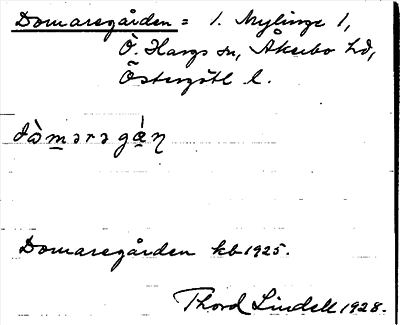 Domaregården = 1. Mylinge 1,
Ö. Hargs sn, Åkerbo hd,
Östergötl l.
dò̀mǝrǝgá̱ṇ
Domaregården kb 1925.
Thord Lindell 1928.